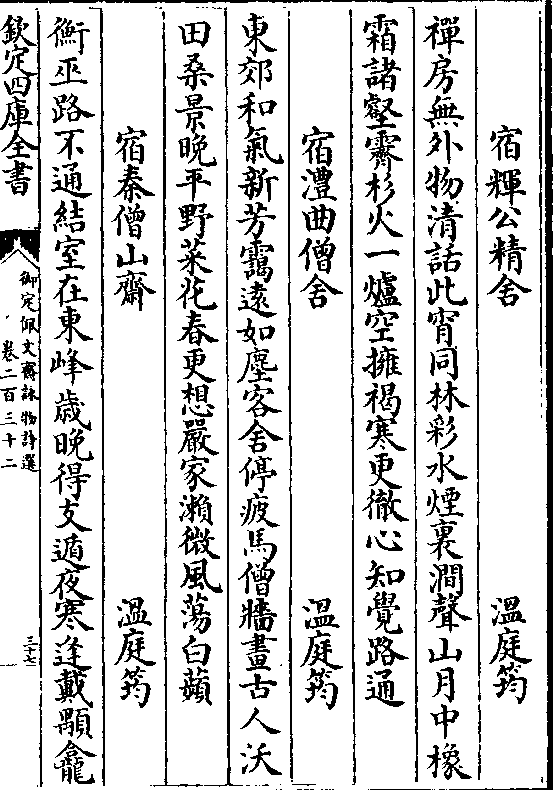 宿輝公精舍　溫庭筠
禪房無外物清話此宵同林彩水煙裏澗聲山月中橡
霜諸壑霽杉火一爐空擁褐寒更徹心知覺路通
宿澧曲僧舍　溫庭筠
東郊和氣新芳靄遠如塵客舍停疲馬僧牆畫古人沃
田桑景晚平野菜花春更想嚴家瀨微風蕩白蘋
宿秦僧山齋　溫庭筠
衡巫路不通結室在東峰歲晚得支遁夜寒逢戴顒龕
欽定四庫全書
御定佩文齋詠物詩選
卷二百三十二
三十七